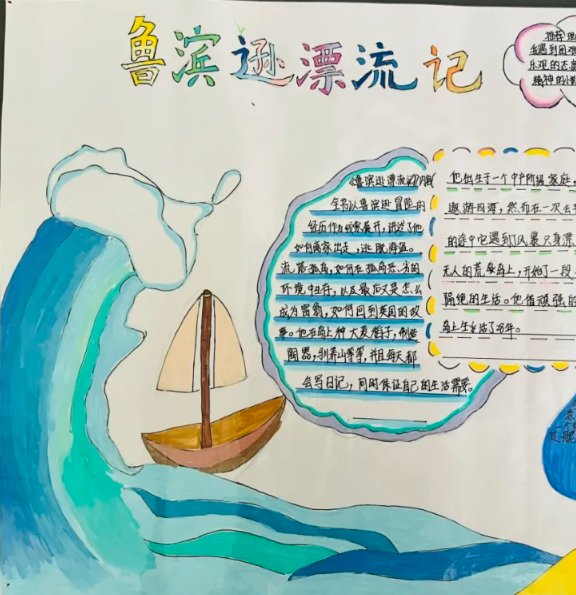 鲁滨逊漂流记
推荐理
我遇到困难
乐观的态
精神的
《鲁滨逊漂流记》内容
全书以鲁滨逊冒险的
经历作为线索展开,讲述了他
如何离家出走,逃脱海盗。
流落孤岛,如何在孤岛恶劣的
环境中生存,以及最后又是怎么
成为富翁,如何回到英国的故
事。他在岛上种大麦稻子,制造
陶器,驯养山羊等,并且每天都
会写日记,同时保证自己的生活需要。
他出生于一个中产阶级家庭,
遨游四海,然而在一次去
的途中它遇到了风暴只身漂
无人的荒岛上,开始了一段
隔绝的生活。他借顽强的
岛上生活了28年。